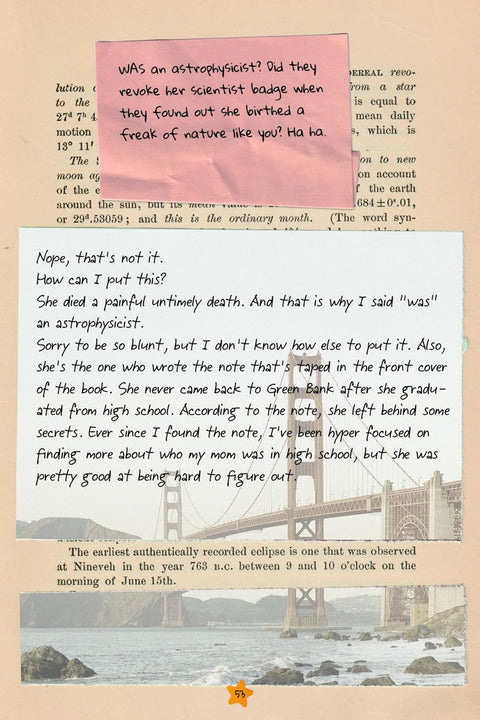 WAS an astrophysicist? Did they
revoke her scientist badge when
they found out she birthed a
freak of nature like you? Ha ha.
DEREAL revo-
lution
from a star
to the
is equal to
27ᵈ 7ʰ 4
mean daily
motion
s, which is
13° 11′
The
on to new
moon
on account
of the e
f the earth
around the sun, but its mean
684±0ᵈ.01,
or 29ᵈ.53059; and this is the ordinary month. (The word syn-
Nope, that's not it.
How can I put this?
She died a painful untimely death. And that is why I said "was"
an astrophysicist.
Sorry to be so blunt, but I don't know how else to put it. Also,
she's the one who wrote the note that's taped in the front cover
of the book. She never came back to Green Bank after she gradu-
ated from high school. According to the note, she left behind some
secrets. Ever since I found the note, I've been hyper focused on
finding more about who my mom was in high school, but she was
pretty good at being hard to figure out.
The earliest authentically recorded eclipse is one that was observed
at Nineveh in the year 763 B.C. between 9 and 10 o'clock on the
morning of June 15th.
53